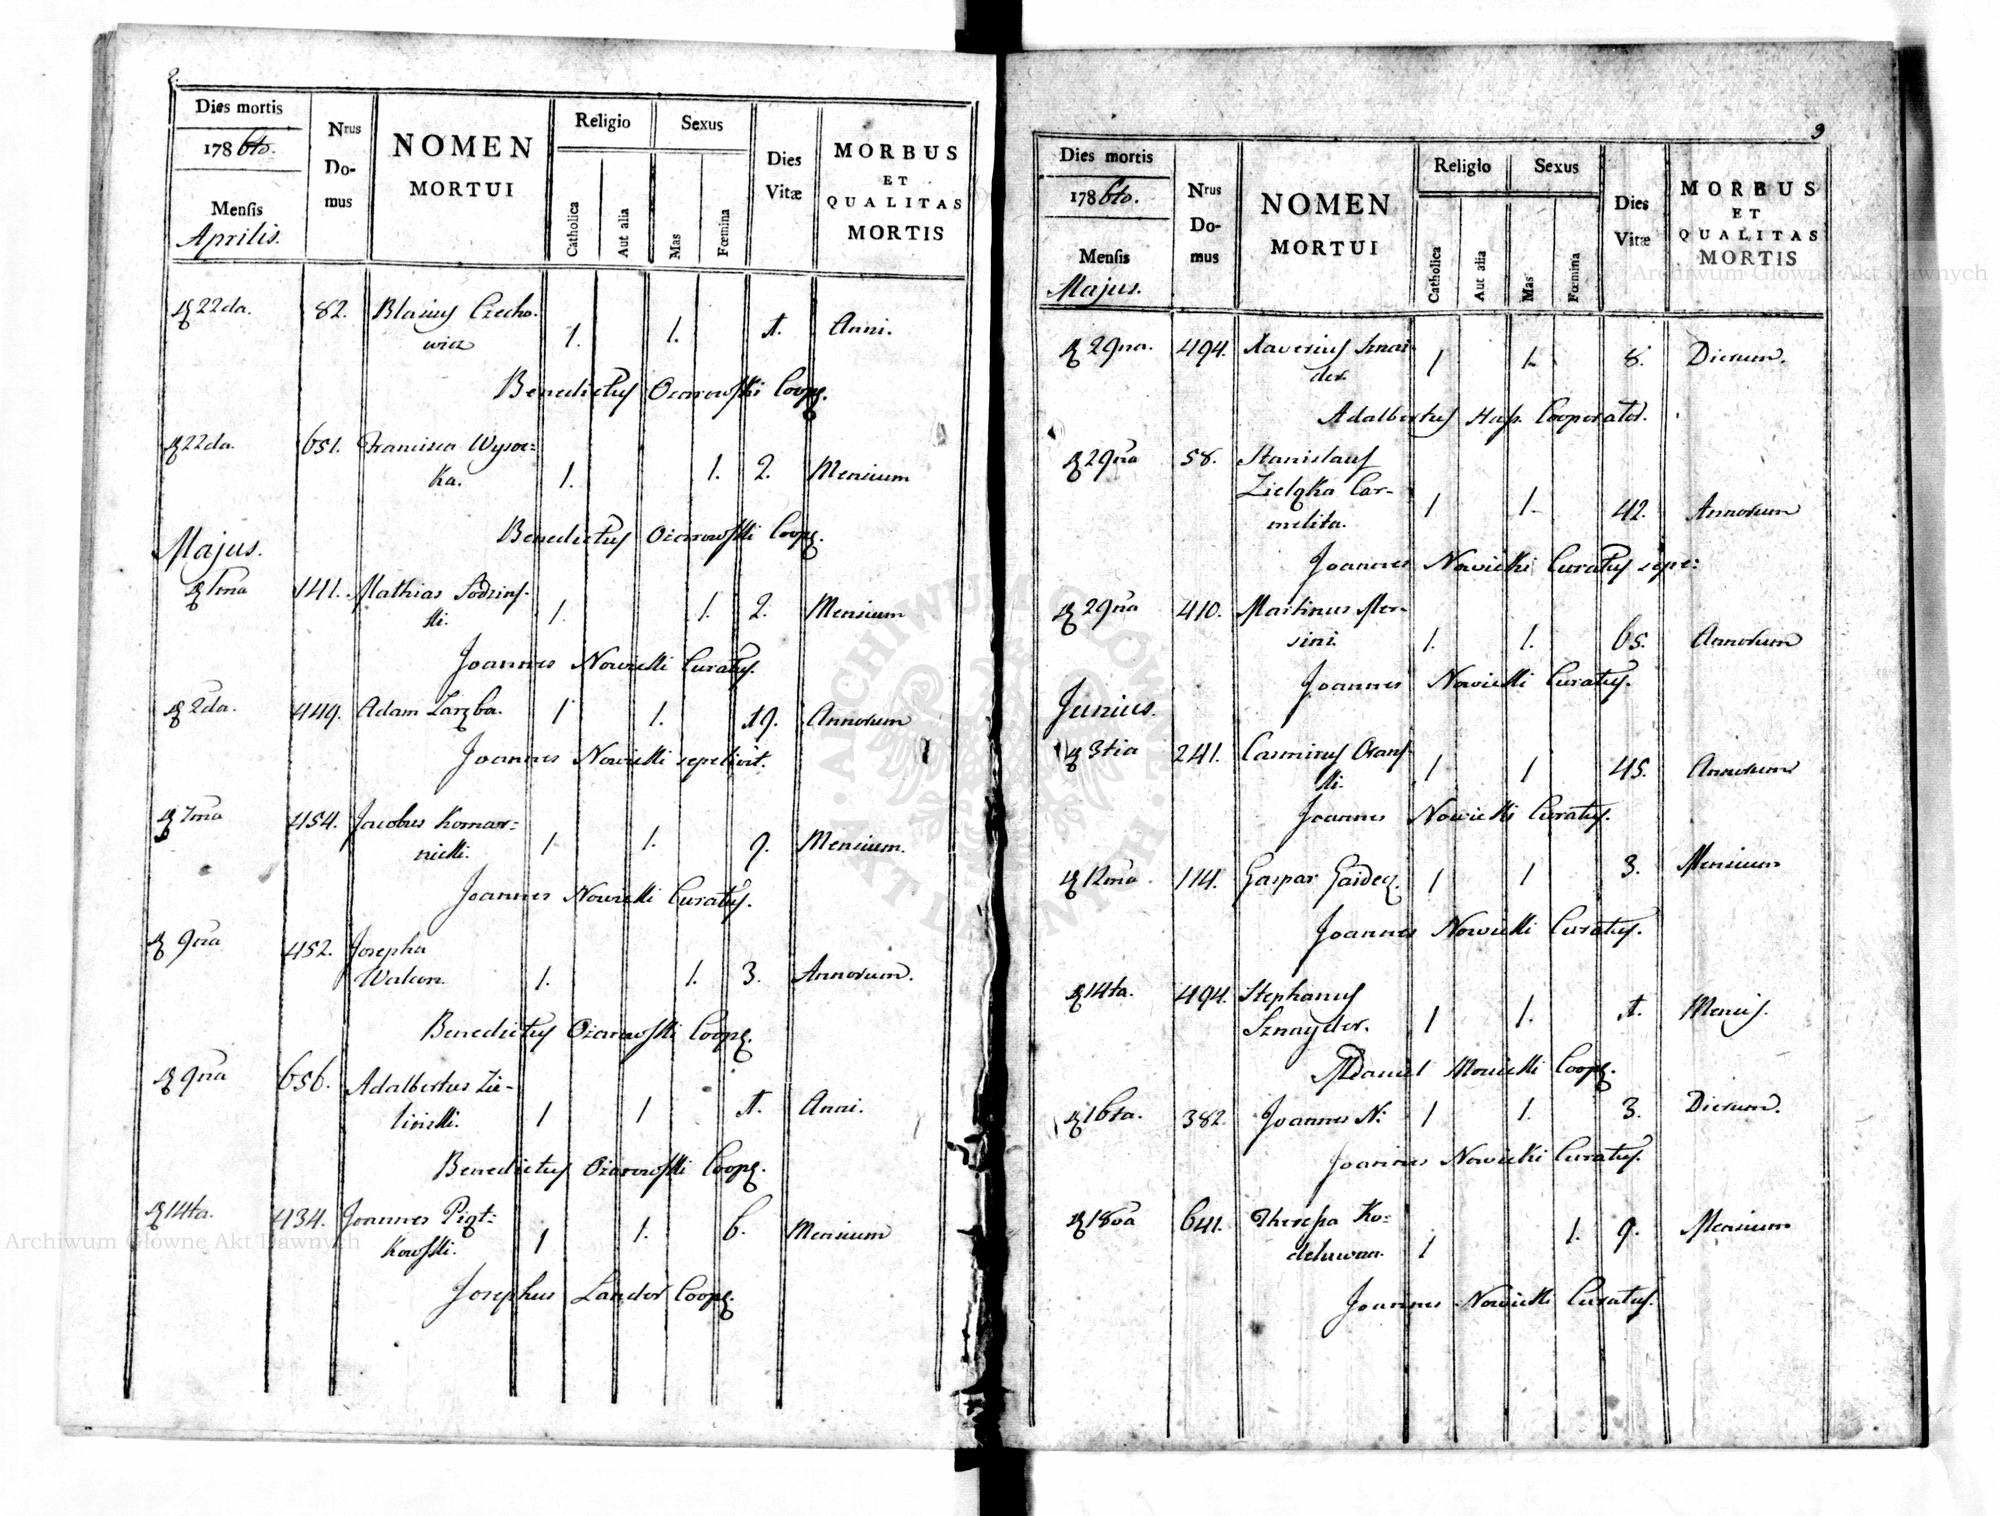 2.
Dies mortis
1786to.
Mensis
Aprilis.
Nrus
Do-
mus
NOMEN
MORTUI
Religio
Catholica
Aut alia
Sexus
Mas
Fœmina
Dies
Vitæ
MORBUS
ET
QUALITAS
MORTIS
22da. 82. Blasius Czecho-
wicz 1. 1. 1. Anni.
Benedictus Ozarowski Coop.
22da. 651. Francisca Wysoc=
ka. 1. 1. 2. Mensium
Benedictus Ozarowski Coop.
Majus.
1ma 141. Mathias
ski. 1. 1. 2. Mensium
Joannes Nowicki Curatus.
2da. 449. Adam Zaręba. 1 1. 19. Annorum
Joannes Nowicki sepelivit.
7ma 454. Jacobus Komar=
nicki. 1 1. 9. Mensium.
Joannes Nowicki Curatus.
9na 452. Josepha
1. 1. 3. Annorum.
Benedictus Ozarowski Coop.
9na 656. Adalbertus Zie-
liński. 1 1 1. Anni.
Benedictus Ozarowski Coop.
14ta. 434. Joannes Piąt=
kowski. 1 1. 6. Mensium
Josephus Lander Coop.
9
Dies mortis
1786to.
Mensis
Majus.
Nrus
Do-
mus
NOMEN
MORTUI
Religio
Catholica
Aut alia
Sexus
Mas
Fœmina
Dies
Vitæ
MORBUS
ET
QUALITAS
MORTIS
29na. 494. Xaverius Sznai-
der. 1 1. 8. Dierum.
Adalbertus Cooperator.
29na 58. Stanislaus
Zielązka Car-
melita. 1 1. 42. Annorum
Joannes Nowicki Curatus sepe:
29na 410. Martinus Mer-
sini 1. 1. 65. Annorum
Joannes Nowicki Curatus.
Junius.
3tia 241. Casimirus
ski. 1 1 45. Annorum
Joannes Nowicki Curatus.
12ma 114. Gaspar 1 1 3. Mensium
Joannes Nowicki Curatus.
14ta. 494. Stephanus
Sznayder. 1 1. 1. Mensis.
Daniel Coop.
16ta. 382. Joannes N: 1 1. 3. Dierum.
Joannes Nowicki Curatus.
18va 641. Theresia Ko=
1 1. 9. Mensium
Joannes Nowicki Curatus.
Archiwum Główne Akt Dawnych
Archiwum Główne Akt Dawnych
ARCHIWUM GŁÓWNE AKT DAWNYCH